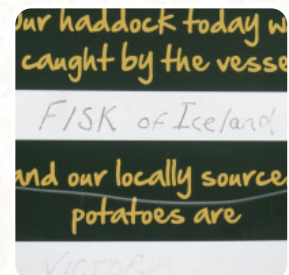 our haddock today w
caught by the vesse
FISK of Iceland
and our locally source
potatoes are
VICTORIA